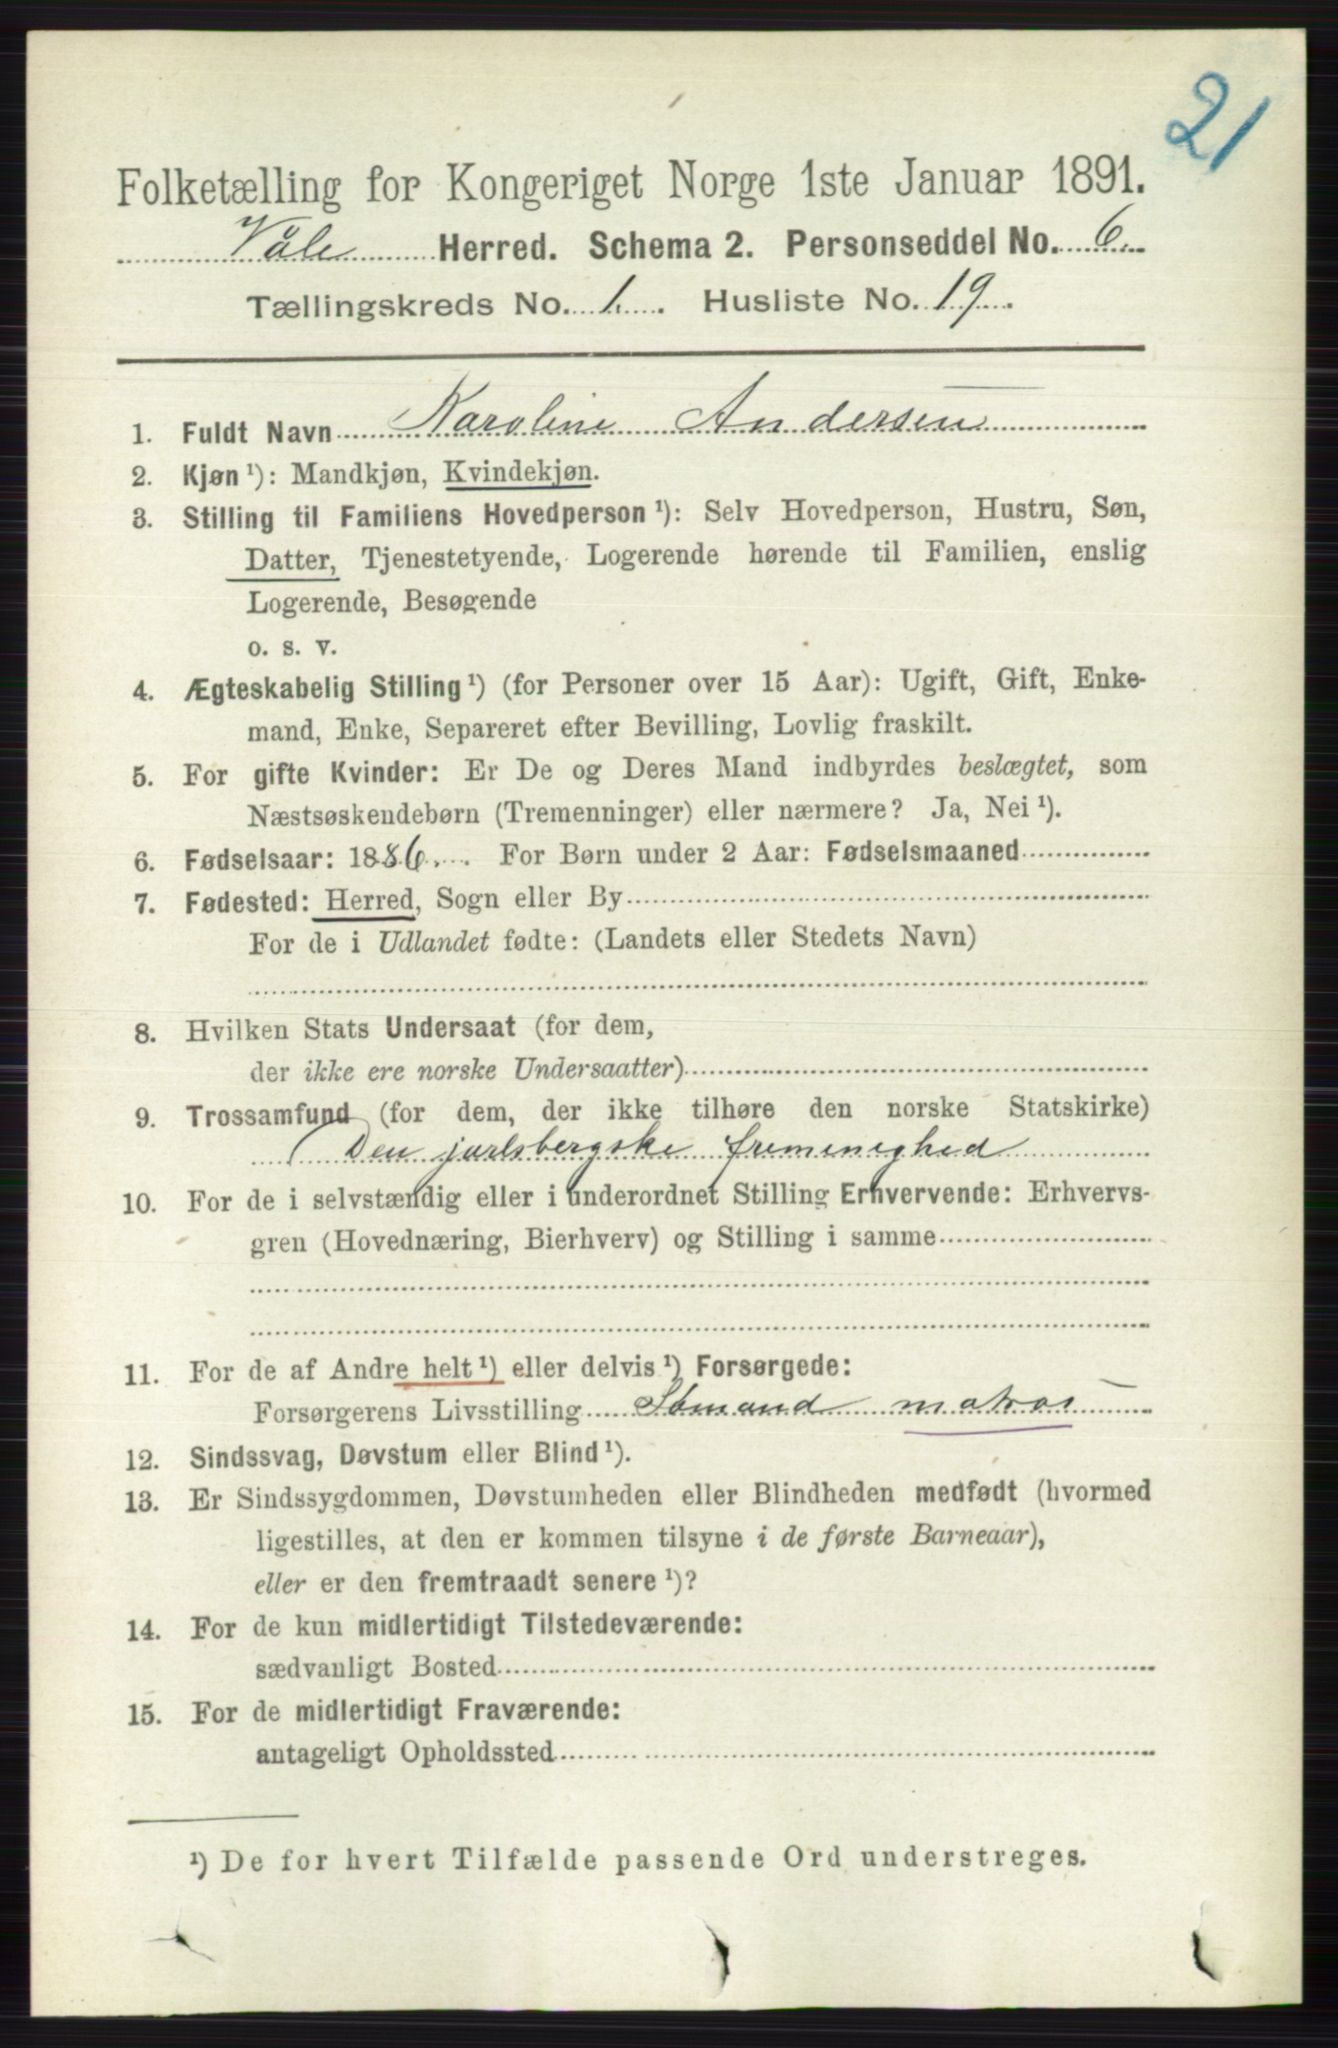 21
Folketælling for Kongeriget Norge 1ste Januar 1891.
Våle Herred. Schema 2. Personseddel No. 6.
Tællingskreds No. 1. Husliste No. 19.
1. Fuldt Navn Karoline Andersen
2. Kjøn ¹): Mandkjøn, Kvindekjøn.
3. Stilling til Familiens Hovedperson ¹): Selv Hovedperson, Hustru, Søn,
Datter, Tjenestetyende, Logerende hørende til Familien, enslig
Logerende, Besøgende
o. s. v.
4. Ægteskabelig Stilling ¹) (for Personer over 15 Aar): Ugift, Gift, Enke-
mand, Enke, Separeret efter Bevilling, Lovlig fraskilt.
5. For gifte Kvinder: Er De og Deres Mand indbyrdes beslægtet, som
Næstsøskendebørn (Tremenninger) eller nærmere? Ja, Nei ¹).
6. Fødselsaar: 1886. For Børn under 2 Aar: Fødselsmaaned
7. Fødested: Herred, Sogn eller By
For de i Udlandet fødte: (Landets eller Stedets Navn)
8. Hvilken Stats Undersaat (for dem,
der ikke ere norske Undersaatter)
9. Trossamfund (for dem, der ikke tilhøre den norske Statskirke)
Den jarlsbergske frimenighed
10. For de i selvstændig eller i underordnet Stilling Erhvervende: Erhvervs-
gren (Hovednæring, Bierhverv) og Stilling i samme
11. For de af Andre helt ¹) eller delvis ¹) Forsørgede:
Forsørgerens Livsstilling Sømand matros
12. Sindssvag, Døvstum eller Blind ¹).
13. Er Sindssygdommen, Døvstumheden eller Blindheden medfødt (hvormed
ligestilles, at den er kommen tilsyne i de første Barneaar),
eller er den fremtraadt senere ¹)?
14. For de kun midlertidigt Tilstedeværende:
sædvanligt Bosted
15. For de midlertidigt Fraværende:
antageligt Opholdssted
¹) De for hvert Tilfælde passende Ord understreges.